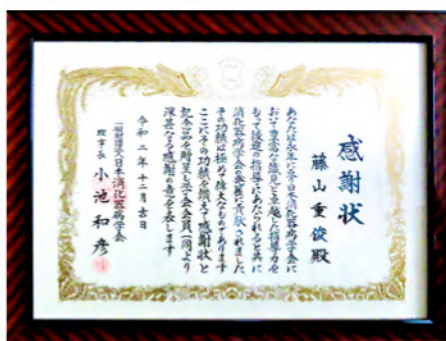 感謝状
藤山重俊殿
あなたは永年に亘り日本消化器病学会に
おいて豊富な識見と卓越した指導力を
もって後進の指導にあたられると共に
消化器病学会の発展に貢献されました
その功績は極めて偉大なものであります
ここにその功績を顕えて感謝状と
記念品を贈呈し学会会員一同より
深甚なる感謝の意を表します
令和二年十二月吉日
一般財団法人日本消化器病学会
理事長 小池和彦